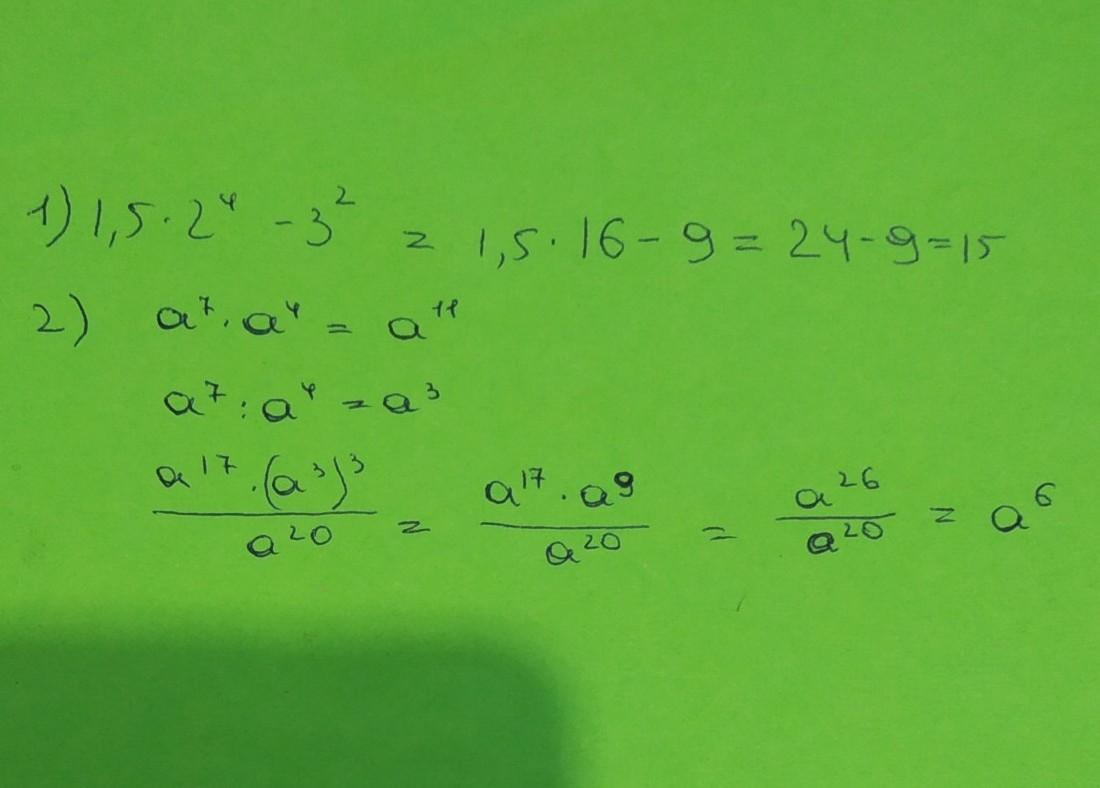 1) 1,5 · 2⁴ - 3² = 1,5 · 16 - 9 = 24 - 9 = 15
2) a⁷ · a⁴ = a¹¹
a⁷ : a⁴ = a³
(a¹⁷ · (a³)³)/a²⁰ = (a¹⁷ · a⁹)/a²⁰ = a²⁶/a²⁰ = a⁶